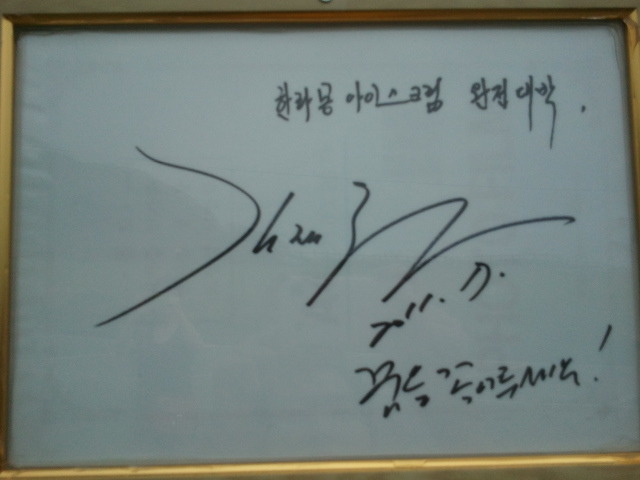 한라봉 아이스크림 완전 대박.
2011. 17.
꿈을 꼭 이루세요!